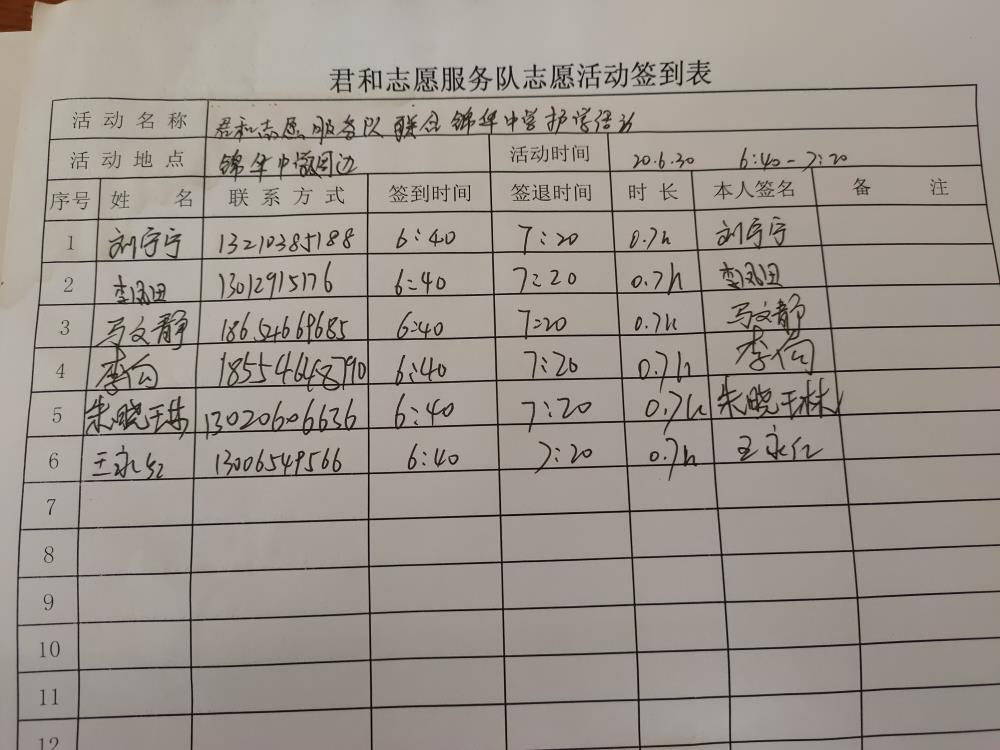 君和志愿服务队志愿活动签到表
活动名称 君和志愿服务队联合锦华中学护学活动
活动地点 锦华中学周边 活动时间 20.6.30 6:40-7:20
序号 姓名 联系方式 签到时间 签退时间 时长 本人签名 备注
1 刘宁宁 13210385188 6:40 7:20 0.7h 刘宁宁
2 李凤田 13012915176 6:40 7:20 0.7h 李凤田
3 马文静 18654669685 6:40 7:20 0.7h 马文静
4 李 18554648790 6:40 7:20 0.7h 李
5 朱晓琳 13020606636 6:40 7:20 0.7h 朱晓琳
6 王永红 13006549566 6:40 7:20 0.7h 王永红
7
8
9
10
11
12